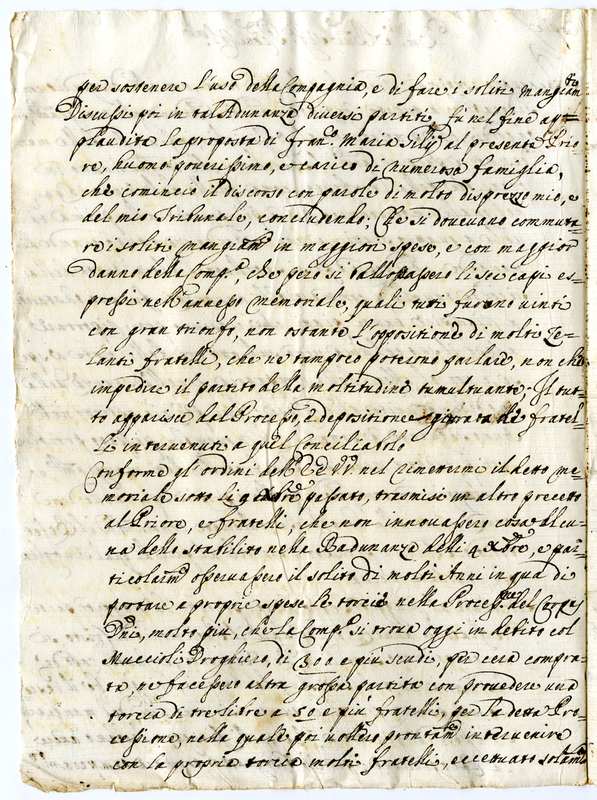 per sostenere l'uso della Compagnia, e di fare i soliti mangiam.ti
Discussi poi in tal Adunanza diversi partiti, fù nel fine ap=
plaudita la proposta di Fran.o Maria Silij al presente Prio=
re, huomo poverissimo, e carico di numerosa famiglia,
che cominciò il discorso con parole di molto disprezzo mio, e
del mio Tribunale, concludendo: Che si dovevano commuta=
re i soliti mangiam.ti in maggiori spese, e con maggior
danno della Comp.a, che però si ballottassero li sei capi es=
pressi nell'annesso memoriale, quali tutti furono vinti
con gran trionfo, non ostante l'oppositione di molti Ze=
lanti fratelli, che ne tampoco poterono parlare, non che
impedire il partito della moltitudine tumultuante; Il tut=
to apparisce dal Processo, e depositione giurata de fratel=
li intervenuti a quel Conciliabolo
Conforme gl'ordini dell' VV nel rimettermi il detto me=
moriale sotto li passato, trasmisi un altro precetto
al Priore, e fratelli, che non innovassero cosa alcu=
na dello stabilito nella Radunanza delli 4 Xbre, e par=
ticolarm.te osservassero il solito di molti Anni in qua di
portare a proprie spese le torcie nella Process.ne del Corpus
Dni, molto più, che la Comp.a si trova oggi in debito col
Muccioli Droghiero, di 300 e più scudi, per cera compra=
ta, ne facessero altra grossa partita con provedere una
torcia di tre libre a 50 e più fratelli, per la detta Pro=
cessione, nella quale poi volsero prontam.te intervenire
con la propria torcia molti fratelli, eccettuato solam.te